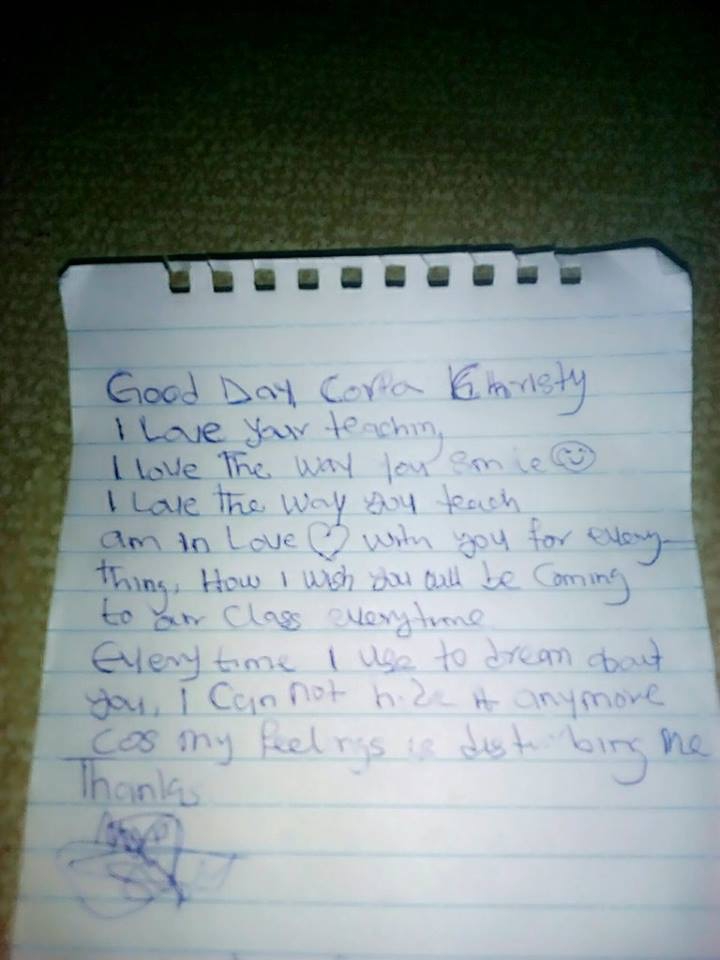 Good Day Corpa Christy
I Love your teaching
I love The way you smile
I Love the way you teach
am in Love with you for every-
thing, How I wish you will be Coming
to our Class everytime
Every time I use to dream about
you, I Can not hide it anymore
cos my feelings is disturbing me
Thanks